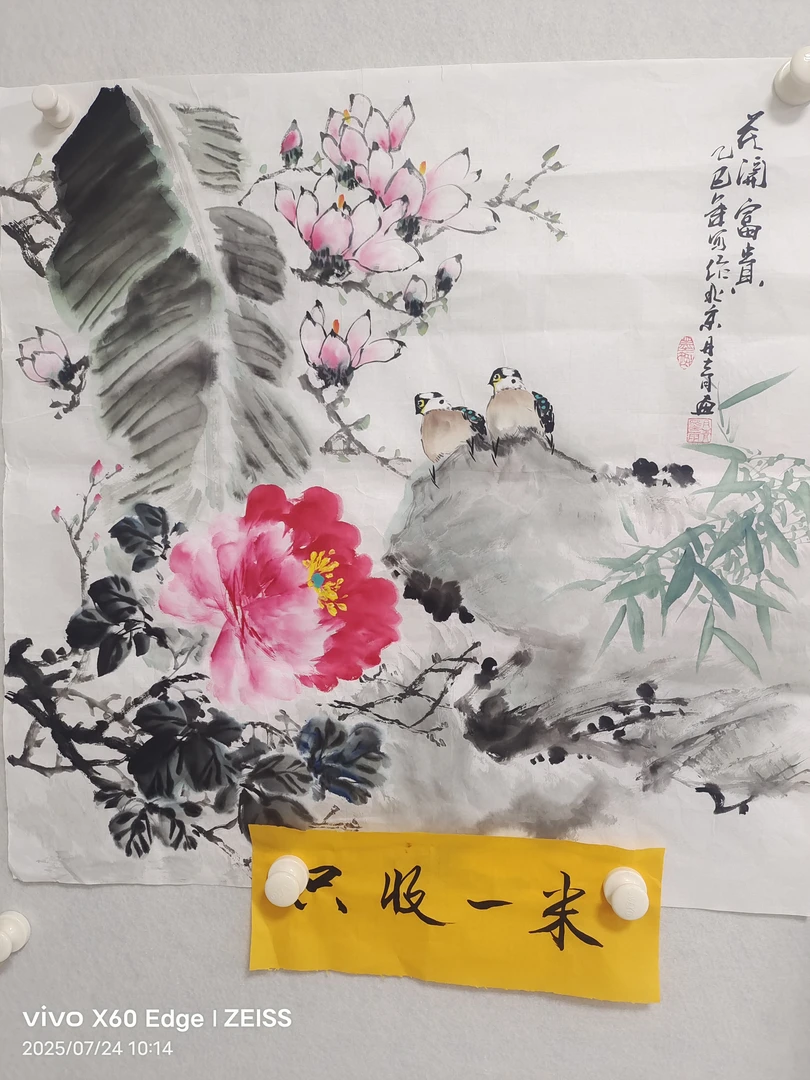 花開富貴
乙巳年写於北京丹青画
只收一米
vivo X60 Edge | ZEISS
2025/07/24 10:14